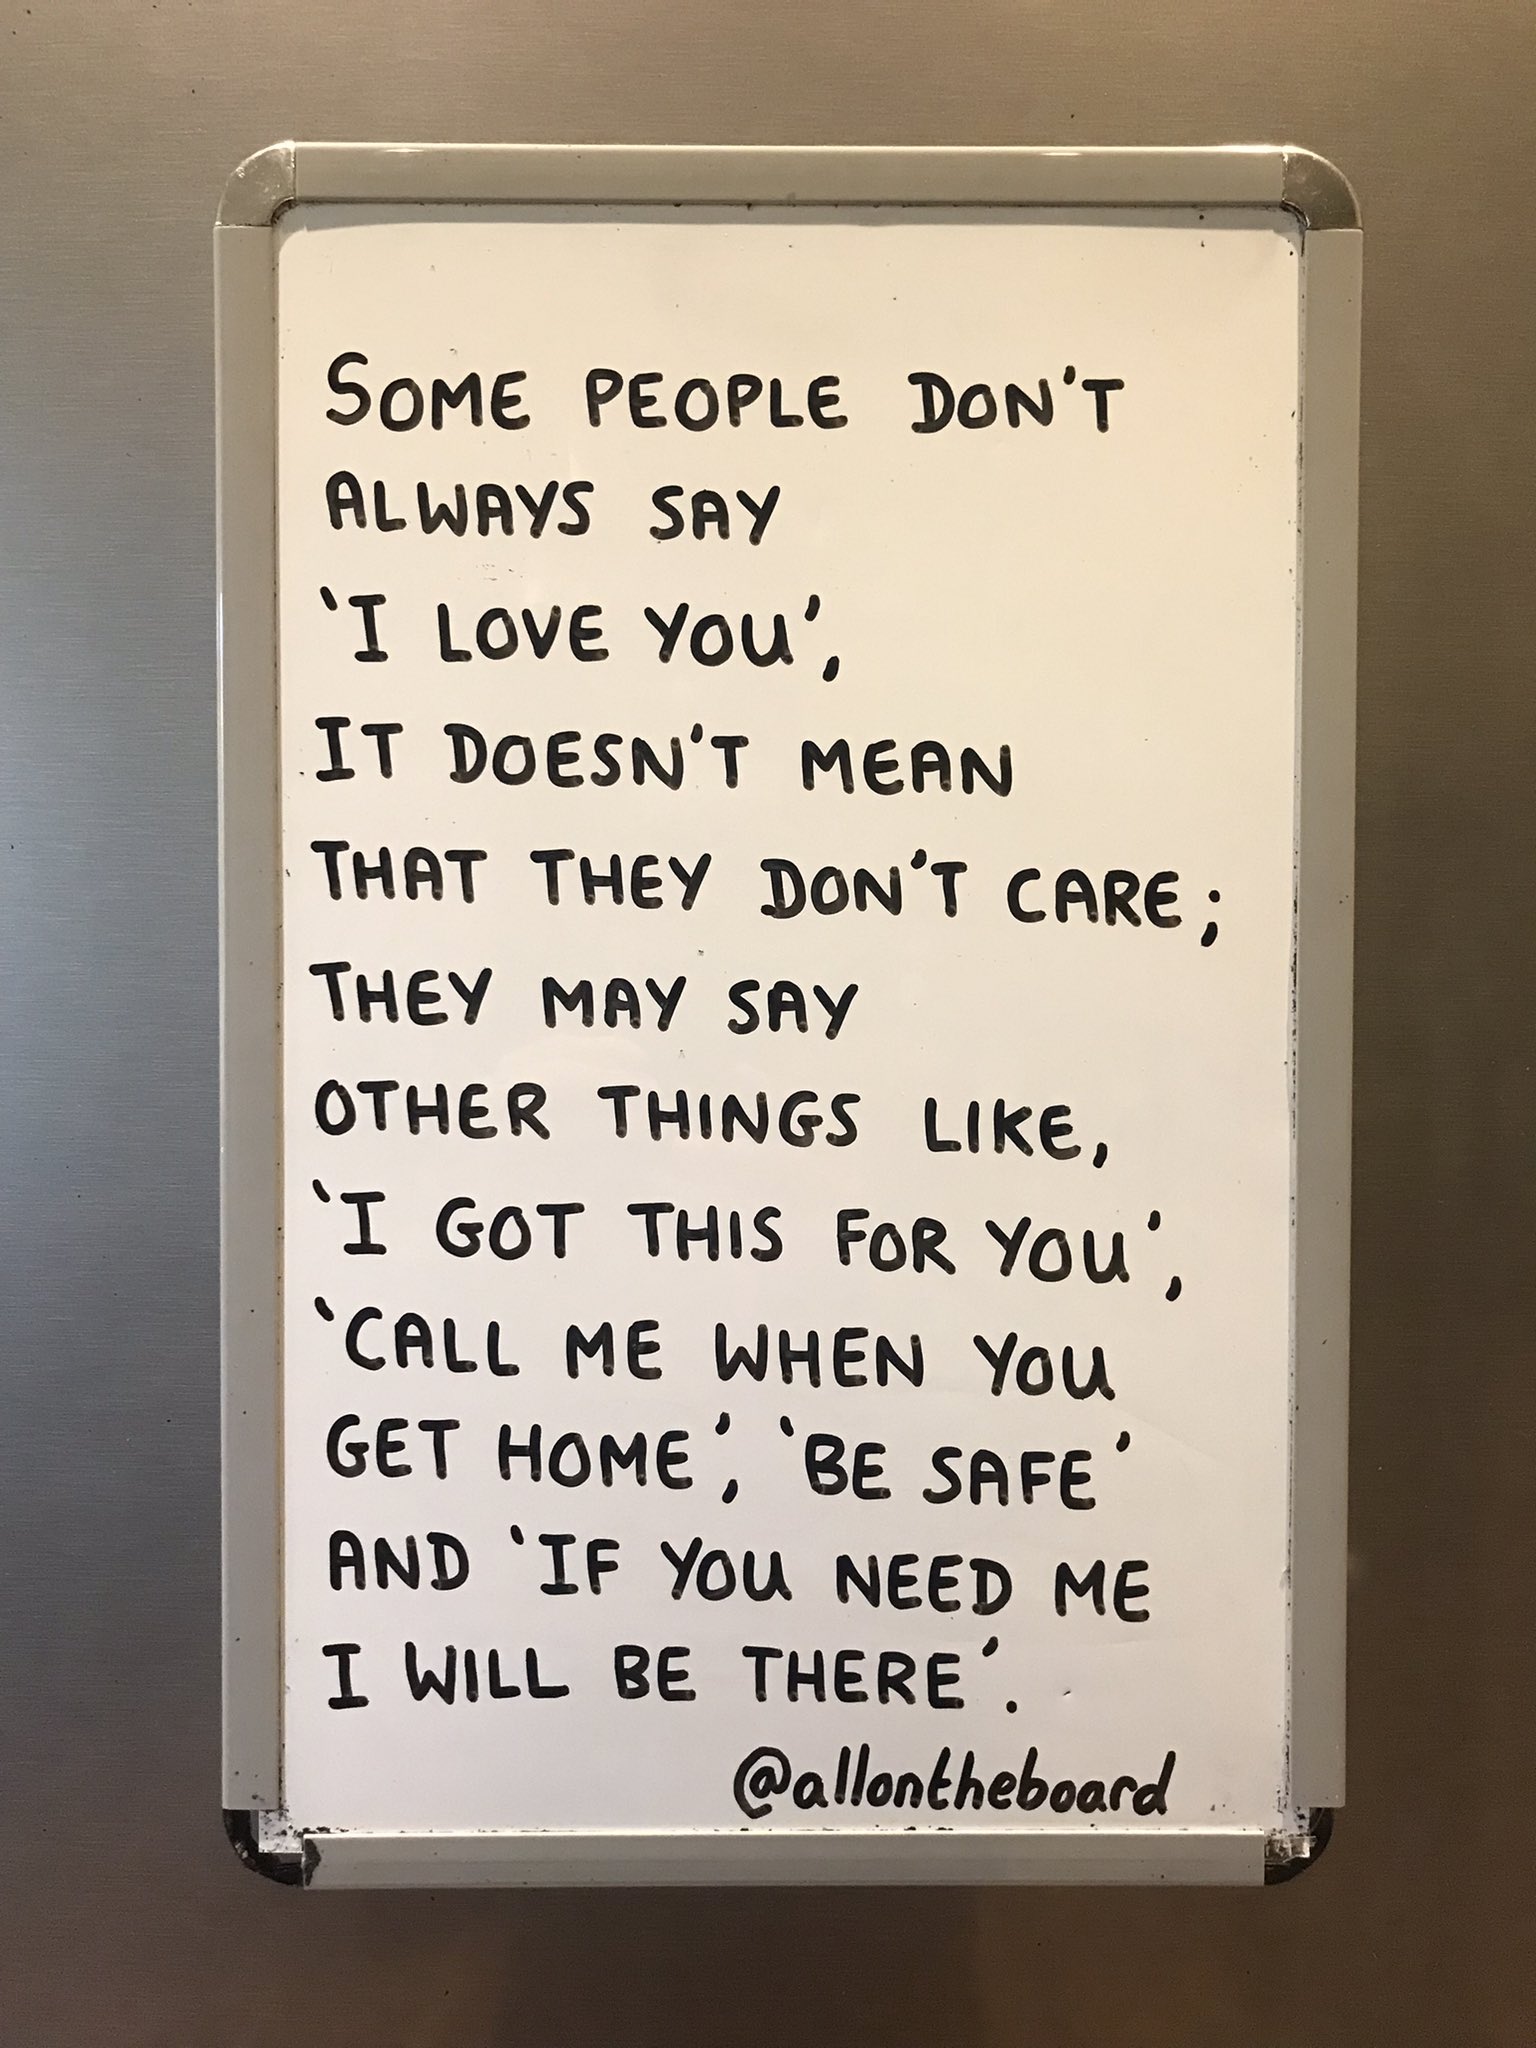 SOME PEOPLE DON'T
ALWAYS SAY
'I LOVE YOU',
IT DOESN'T MEAN
THAT THEY DON'T CARE;
THEY MAY SAY
OTHER THINGS LIKE,
'I GOT THIS FOR YOU',
'CALL ME WHEN YOU
GET HOME', 'BE SAFE'
AND 'IF YOU NEED ME
I WILL BE THERE'.
@allontheboard